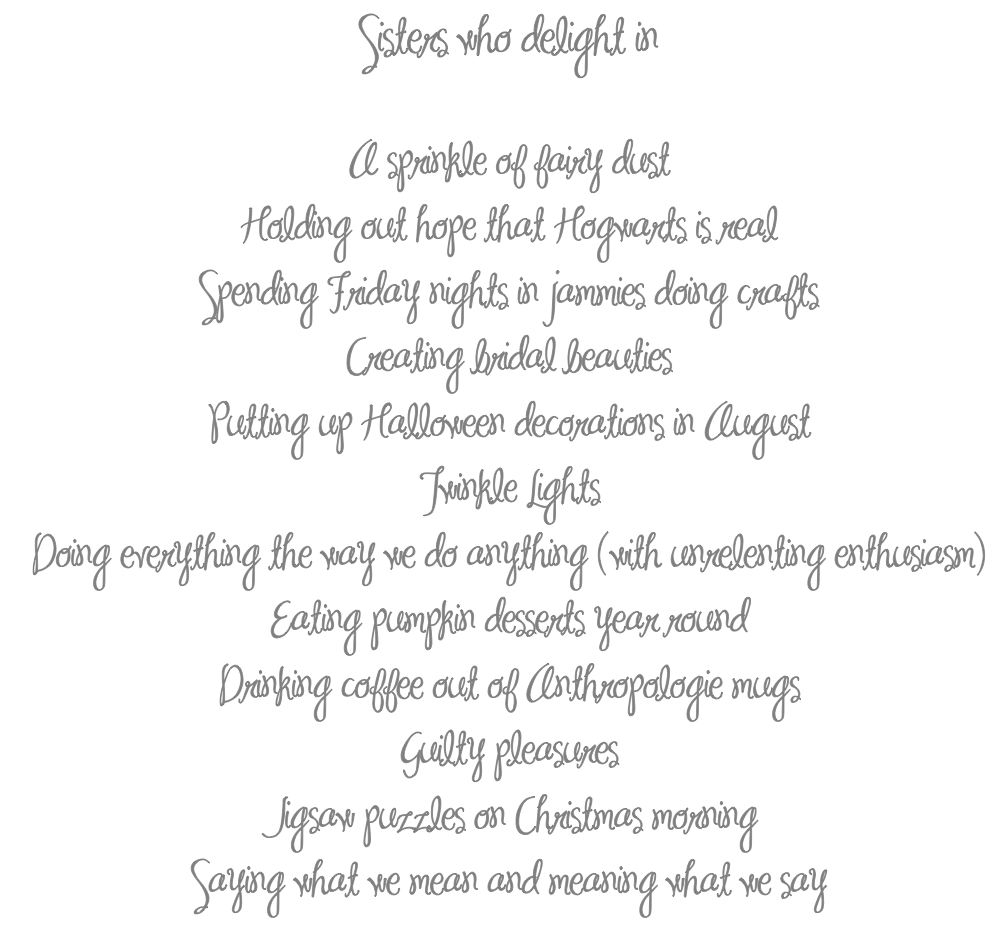 Sisters who delight in
A sprinkle of fairy dust
Holding out hope that Hogwarts is real
Spending Friday nights in jammies doing crafts
Creating bridal beauties
Putting up Halloween decorations in August
Twinkle Lights
Doing everything the way we do anything (with unrelenting enthusiasm)
Eating pumpkin desserts year round
Drinking coffee out of Anthropologie mugs
Guilty pleasures
Jigsaw puzzles on Christmas morning
Saying what we mean and meaning what we say